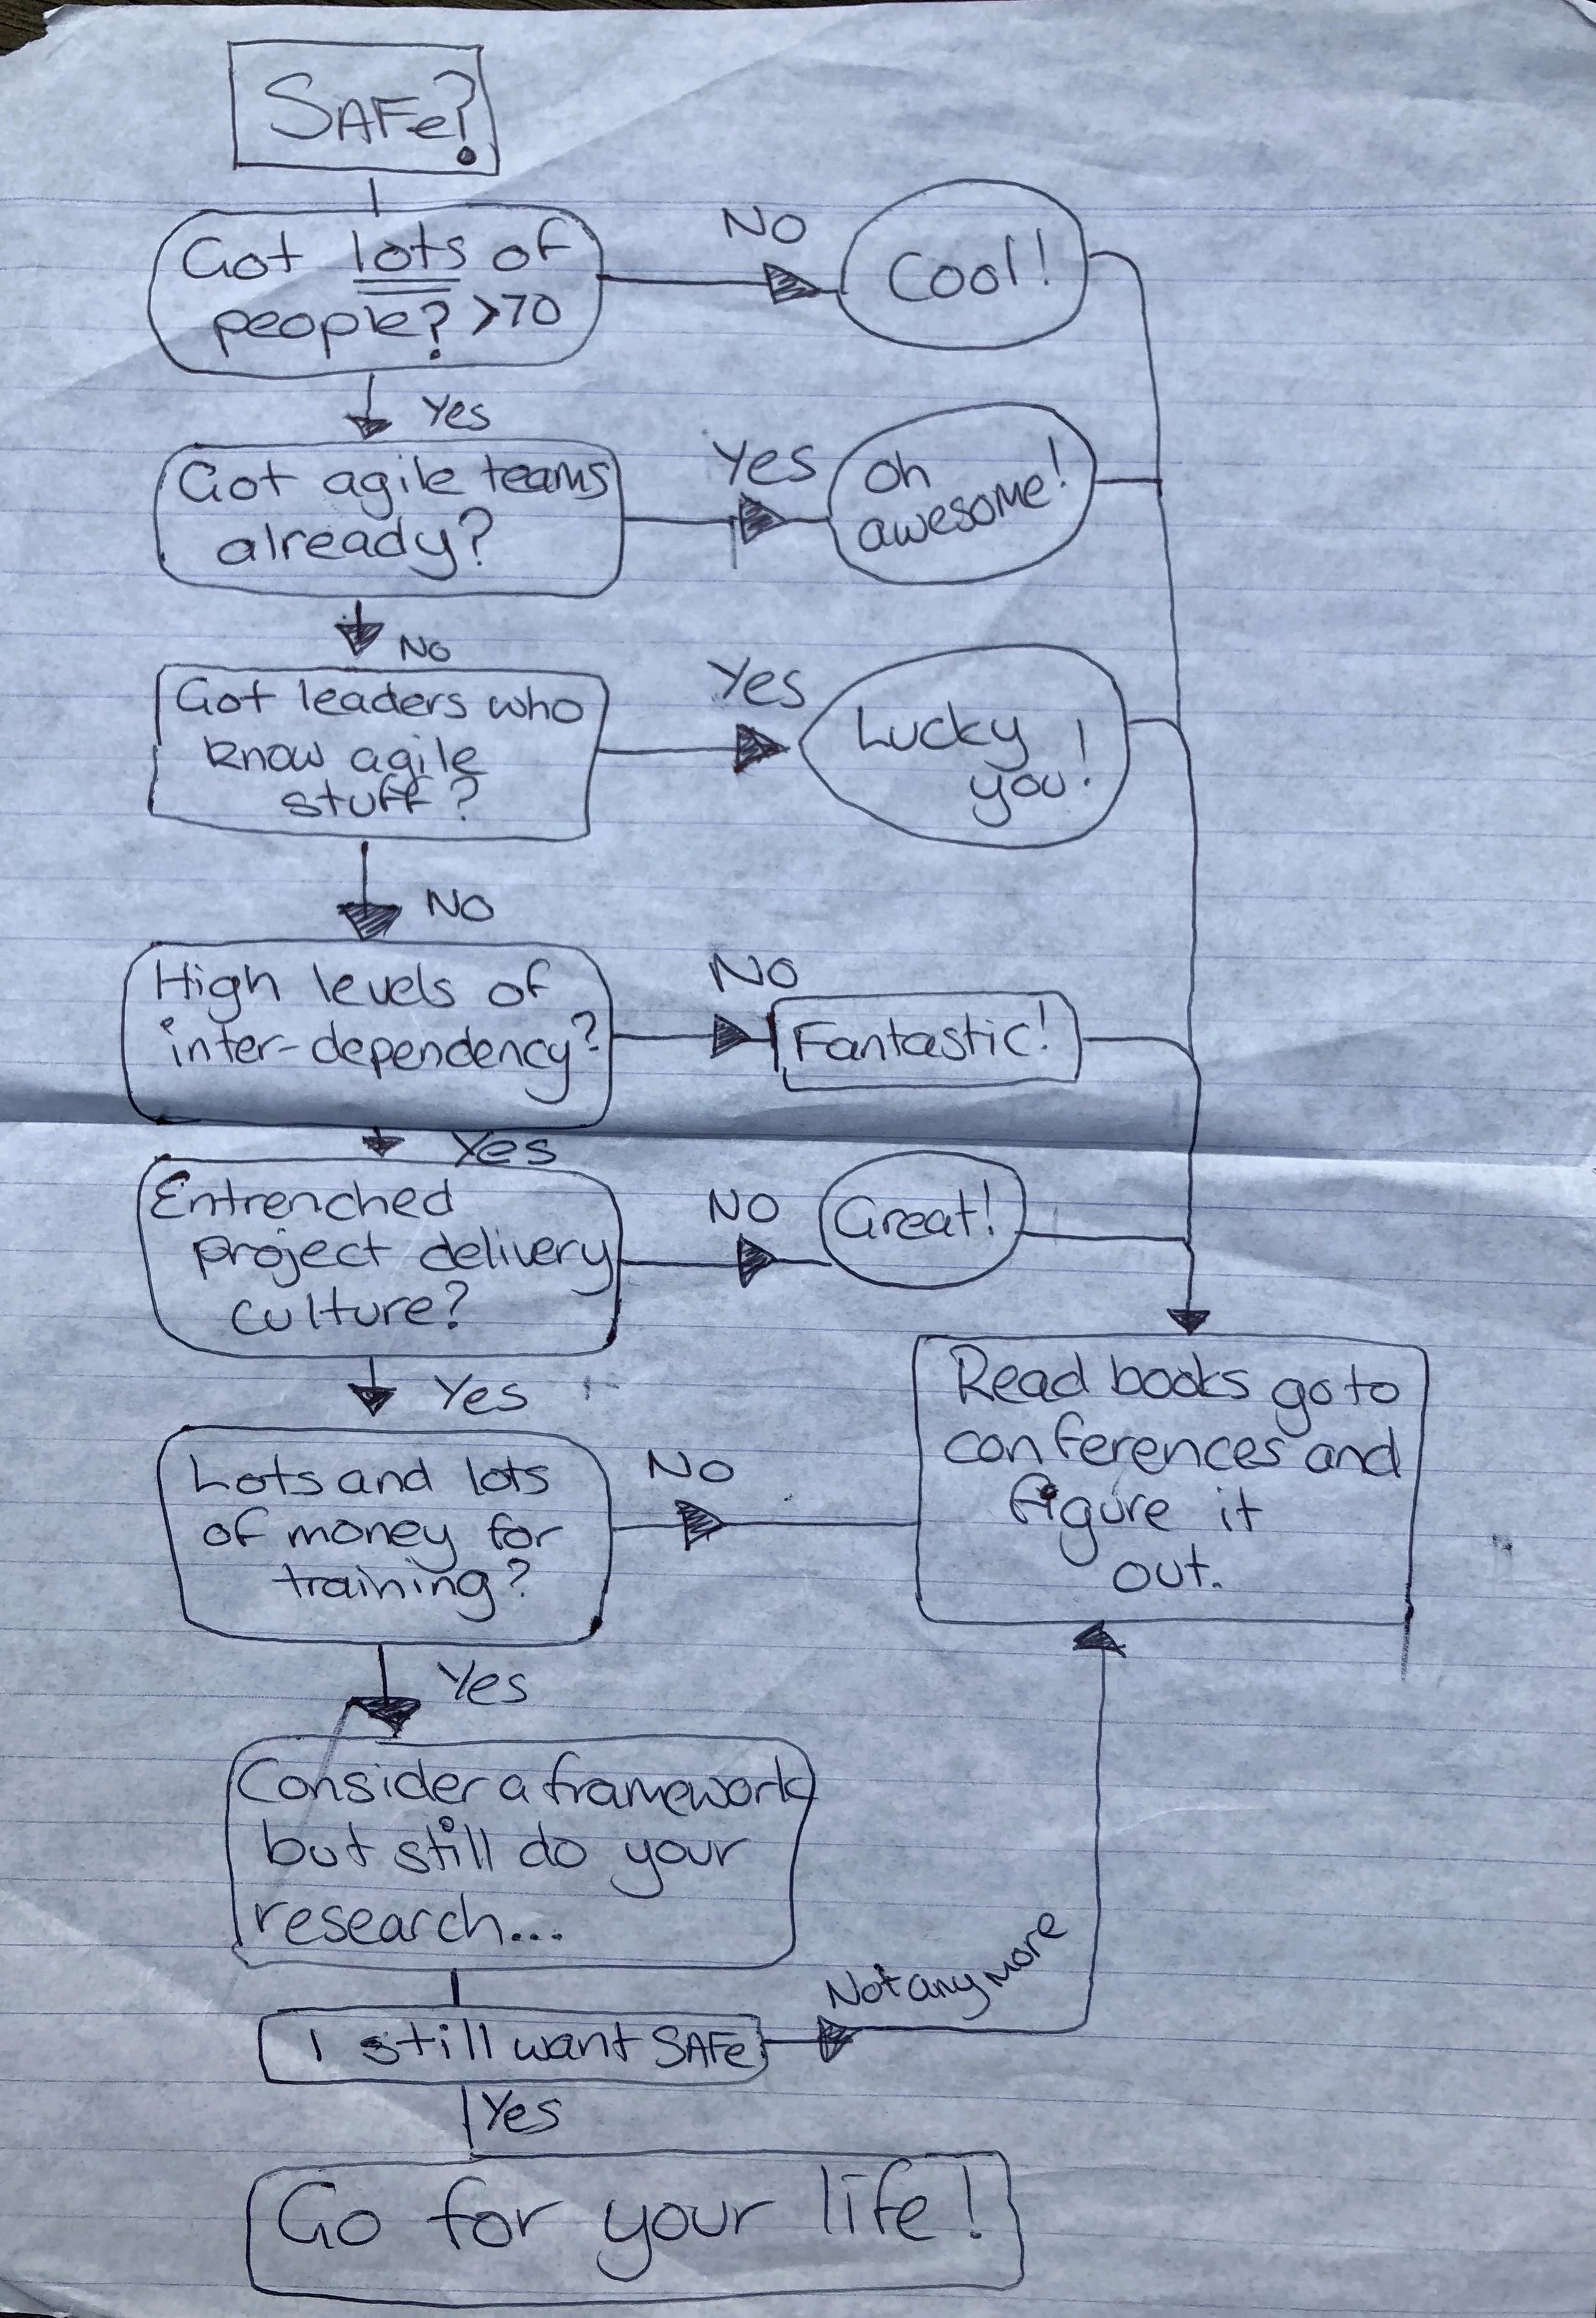 SAFe?
Got lots of
people? >70
No
Cool!
Yes
Got agile teams
already?
Yes
Oh
awesome!
No
Got leaders who
know agile
stuff?
Yes
Lucky
you!
No
High levels of
inter-dependency?
No
Fantastic!
Yes
Entrenched
project delivery
culture?
No
Great!
Yes
Lots and lots
of money for
training?
No
Read books go to
conferences and
figure it
out.
Yes
Consider a framework
but still do your
research...
I still want SAFe
Not any more
Yes
Go for your life!